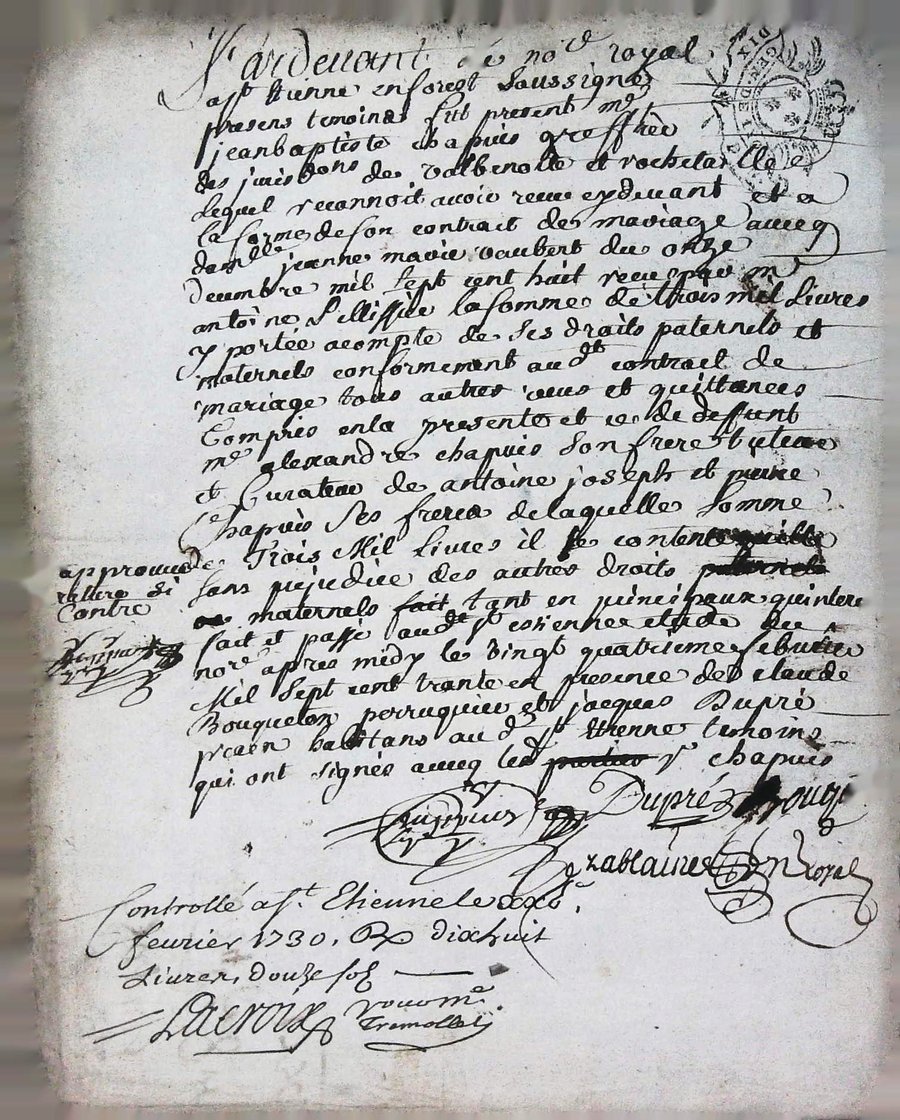 Pardevant le no.re royal
a st etienne en forest soussigné
presens temoins fut present me
jean baptiste chapuis greffier
des jurisdons de valbenoite et rochetaillé
lequel reconnoit avoir receu cydevant et a
la forme de son contrait de mariage avecq
damlle jeanne marie vaubert du onze
decembre mil sept cent huit receu par me
antoine la somme de trois mil livres
y portée acompte de ses droits paternels et
maternels conformement audt contrait de
mariage tous autres receus et quittances
Compris en la presente et ce de deffunt
me alexandre chapuis son frere tuteur
et Curateur de antoine joseph et
Chapuis ses freres de laquelle somme
de Trois Mil Livres il se contente
sans prejudice des autres droits paternels
ou maternels fait tant en principaux qu interets
fait et passé audt st estienne etude du
nore apres midy le vingt quatrieme febvrier
Mil sept cent trante en presence de claude
Bouqueton perruquier et jacques Dupré
habitans audt st etienne temoins
qui ont signés avecq led parties sr chapuis
approuvé
si
Contre
Chapuis Dupré
n Royal
Controllé a St. Etienne le
fevrier 1730. Rx dixhuit
Livres, douze sols
Lacroix pour mr
Tremollet
DIX
GEN DE